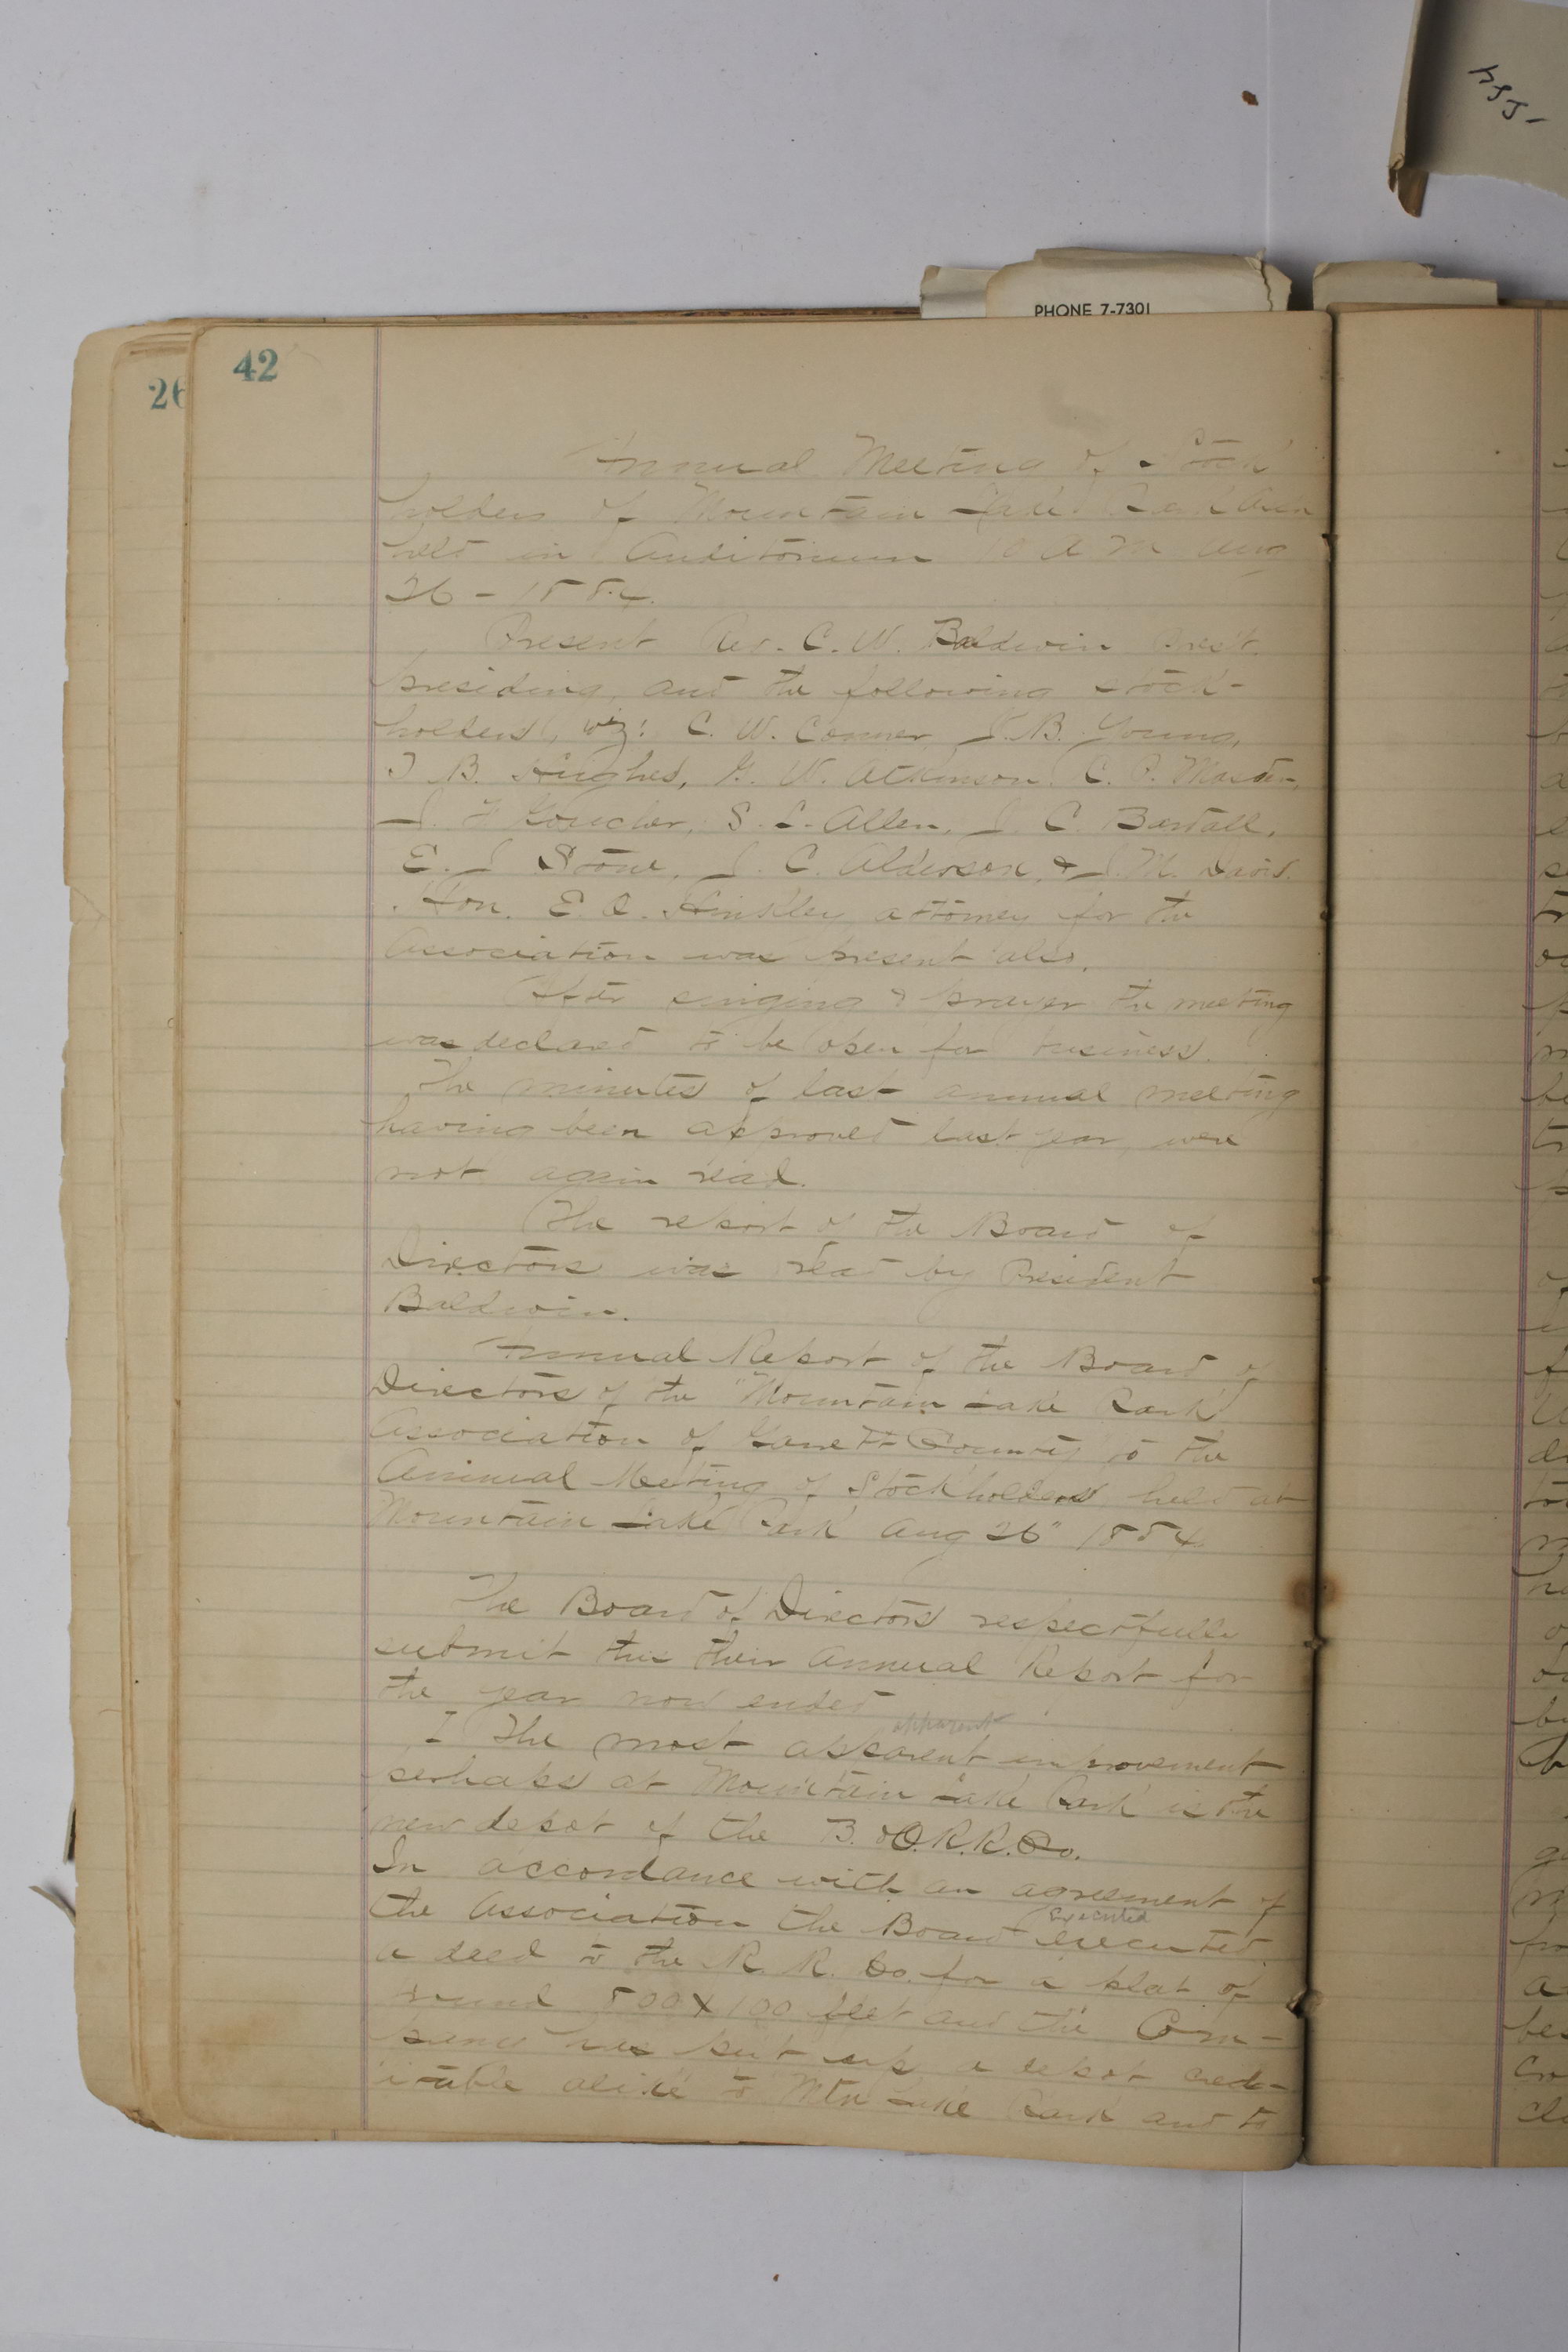 42
26
PHONE 7-7301
Annual Meeting of Stock
holders of Mountain Lake Park Assn
held in Auditorium 10 A M Aug
26 - 1884.
Present Rev. C. W. Baldwin Pres't.
presiding, and the following stock-
holders, viz: C. W. Conner, J. B. Young,
T B. Hughes, G. W. Atkinson, C. P. Masden,
J. F Goucher, S. L. Allen, J. C. Bardall,
E. J Stone, J. C. Alderson, & J. M. Davis.
Hon. E. O. Hinkley attorney for the
Association was present also.
After singing & prayer the meeting
was declared to be open for business.
The minutes of last annual meeting
having been approved last year, were
not again read.
The report of the Board of
Directors was read by President
Baldwin.
Annual Report of the Board of
Directors of the "Mountain Lake Park
Association of Garrett County to the
Annual Meeting of Stockholders held at
Mountain Lake Park Aug 26" 1884
The Board of Directors respectfully
submit this their Annual Report for
the year now ended
apparent
I The most apparent improvement
perhaps at Mountain Lake Park is the
new depot of the B. & O. R. R. Co.
In accordance with an agreement of
Executed
the Association the Board executed
a deed to the R. R. Co. for a plat of
ground 500 X 100 feet and the Com-
pany has put up a depot cred-
itable alike to Mtn Lake Park and to